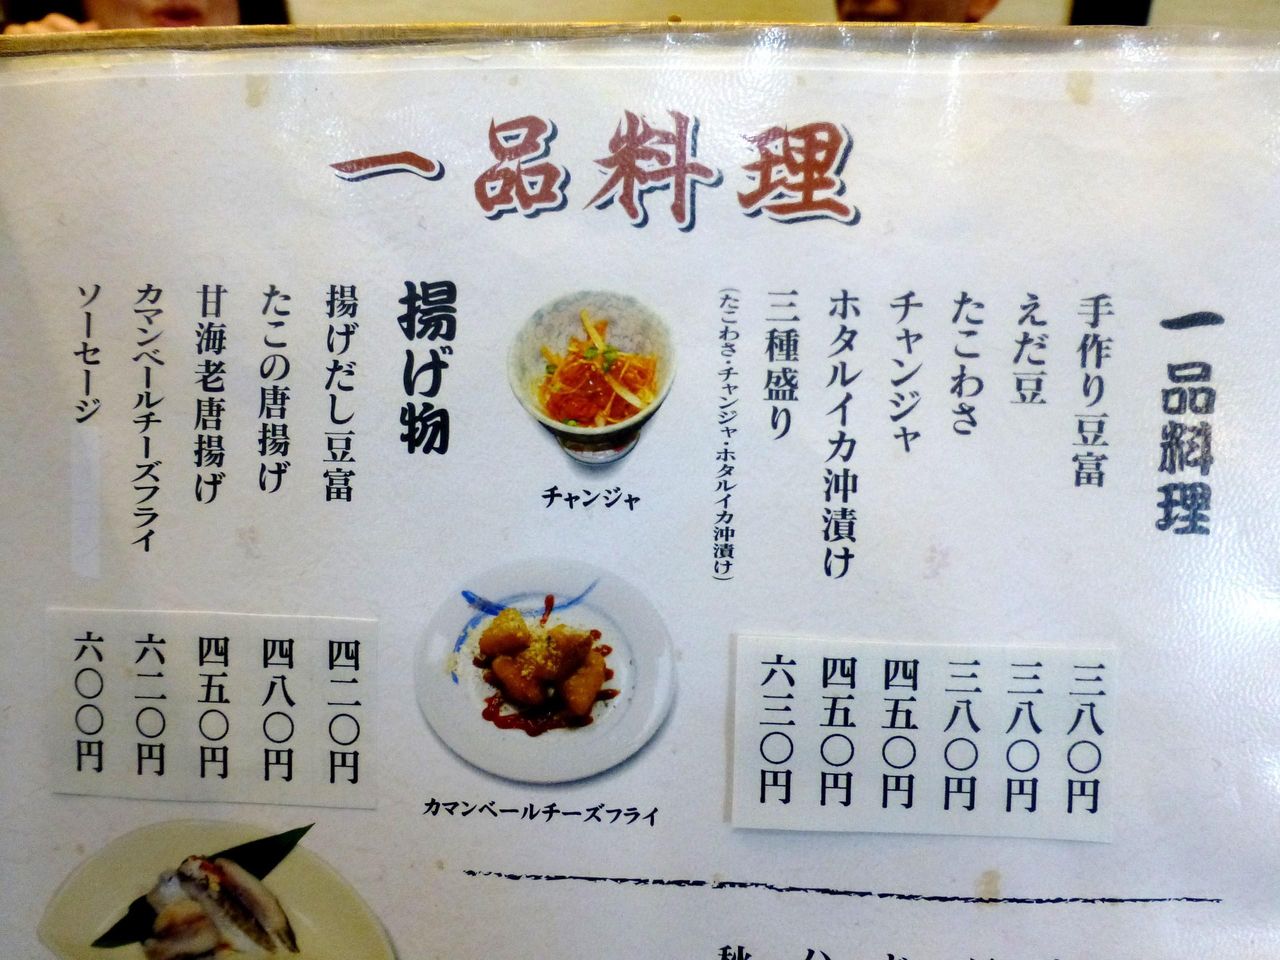 一品料理
一品料理
手作り豆富
えだ豆
たこわさ
チャンジャ
ホタルイカ沖漬け
三種盛り
(たこわさ・チャンジャ・ホタルイカ沖漬け)
三八〇円
三八〇円
三八〇円
四五〇円
四五〇円
六三〇円
チャンジャ
カマンベールチーズフライ
揚げ物
揚げだし豆富
たこの唐揚げ
甘海老唐揚げ
カマンベールチーズフライ
ソーセージ
四二〇円
四八〇円
四五〇円
六二〇円
六〇〇円